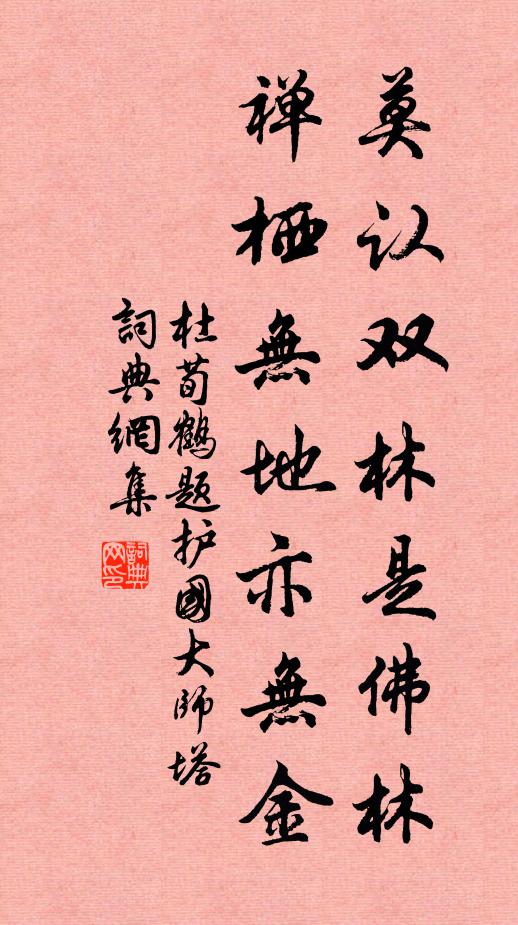 莫认双林是佛林
禅栖無地亦無金
杜荀鶴题护國大師塔
詞典網集
詞典网印